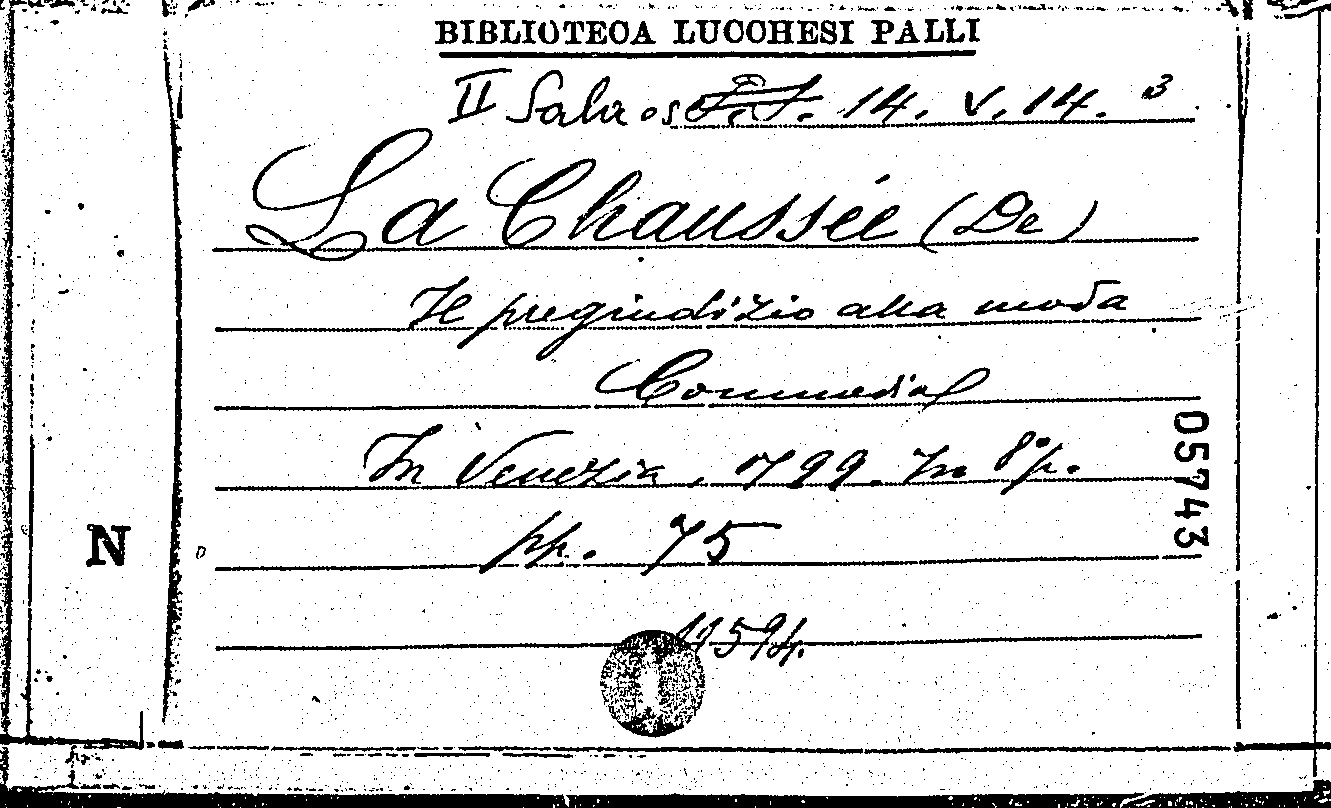 BIBLIOTECA LUCCHESI PALLI
II Sala 14. V. 14. 3
La Chaussée (De)
Il pregiudizio alla moda
Commedia
In Venezia, 1799. In 8º p.
pp. 75
05743
N
11594.